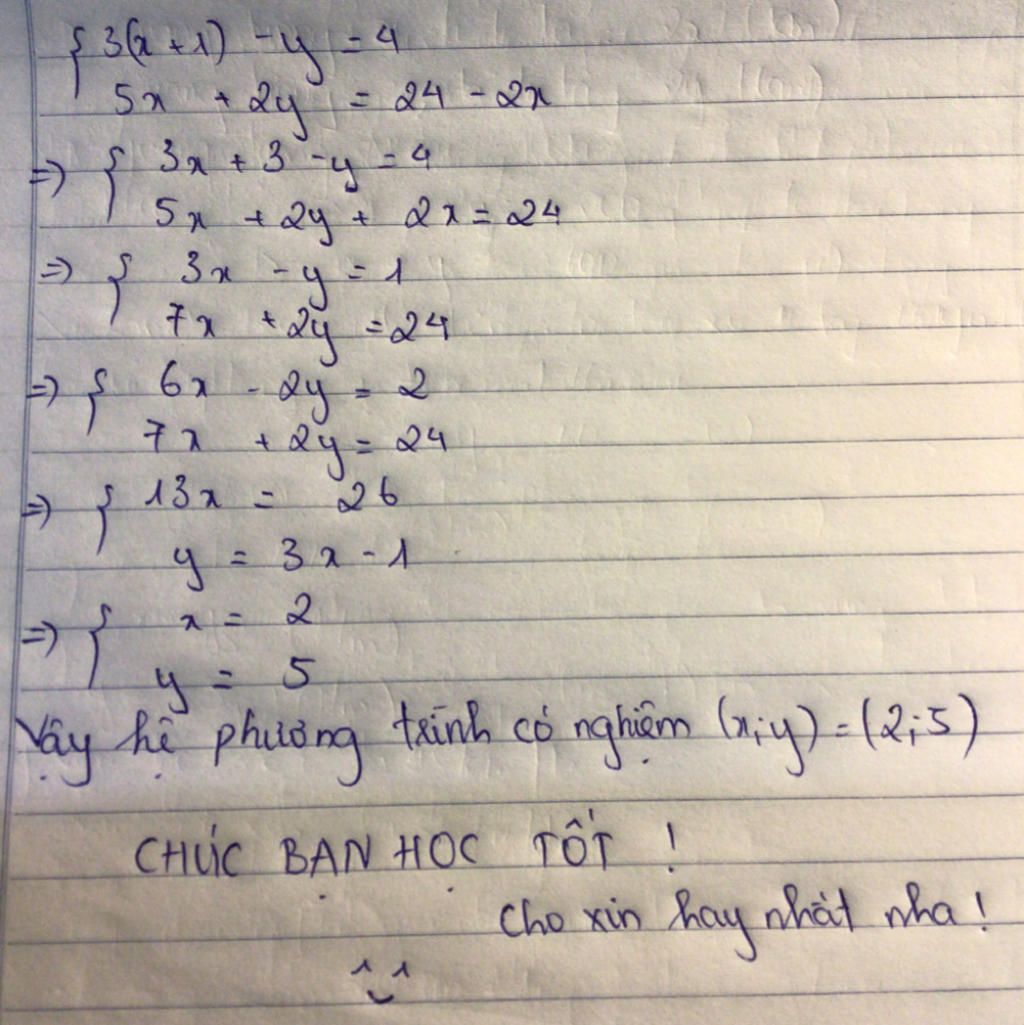 { 3(x + 1) - y = 4
5x + 2y = 24 - 2x
=> { 3x + 3 - y = 4
5x + 2y + 2x = 24
=> { 3x - y = 1
7x + 2y = 24
=> { 6x - 2y = 2
7x + 2y = 24
=> { 13x = 26
y = 3x - 1
=> { x = 2
y = 5
Vậy hệ phương trình có nghiệm (x;y) = (2;5)
CHÚC BẠN HỌC TỐT !
Cho xin hay nhất nha !